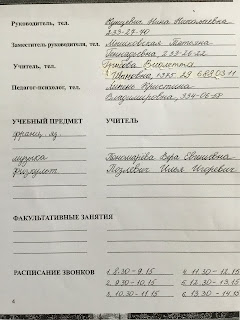 Руководитель, тел. Нина Николаевна
233-27-40
Заместитель руководителя, тел. Татьяна
Геннадьевна, 233-26-22
Учитель, тел. Виолетта
Ивановна, 1385 29 6880311
Педагог-психолог, тел. Кристина
Владимировна, 334-06-58
УЧЕБНЫЙ ПРЕДМЕТ УЧИТЕЛЬ
франц. яз.
музыка Пономарева Вера Евгеньевна
физкульт. Илья Игоревич
ФАКУЛЬТАТИВНЫЕ ЗАНЯТИЯ
РАСПИСАНИЕ ЗВОНКОВ 1. 8.30-9.15 4. 11.30-12.15
2. 9.30-10.15 5. 12.30-13.15
3. 10.30-11.15 6. 13.30-14.15
4